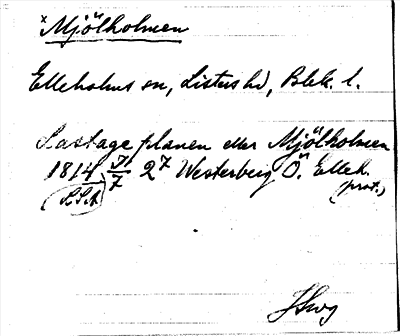 x Mjölholmen
Elleholms sn, Listers hd, Blek. l.
Lastage planen eller Mjölholmen
1814 31/7 27 Westerberg Ö. Elleh.
(LSA) (prot.)